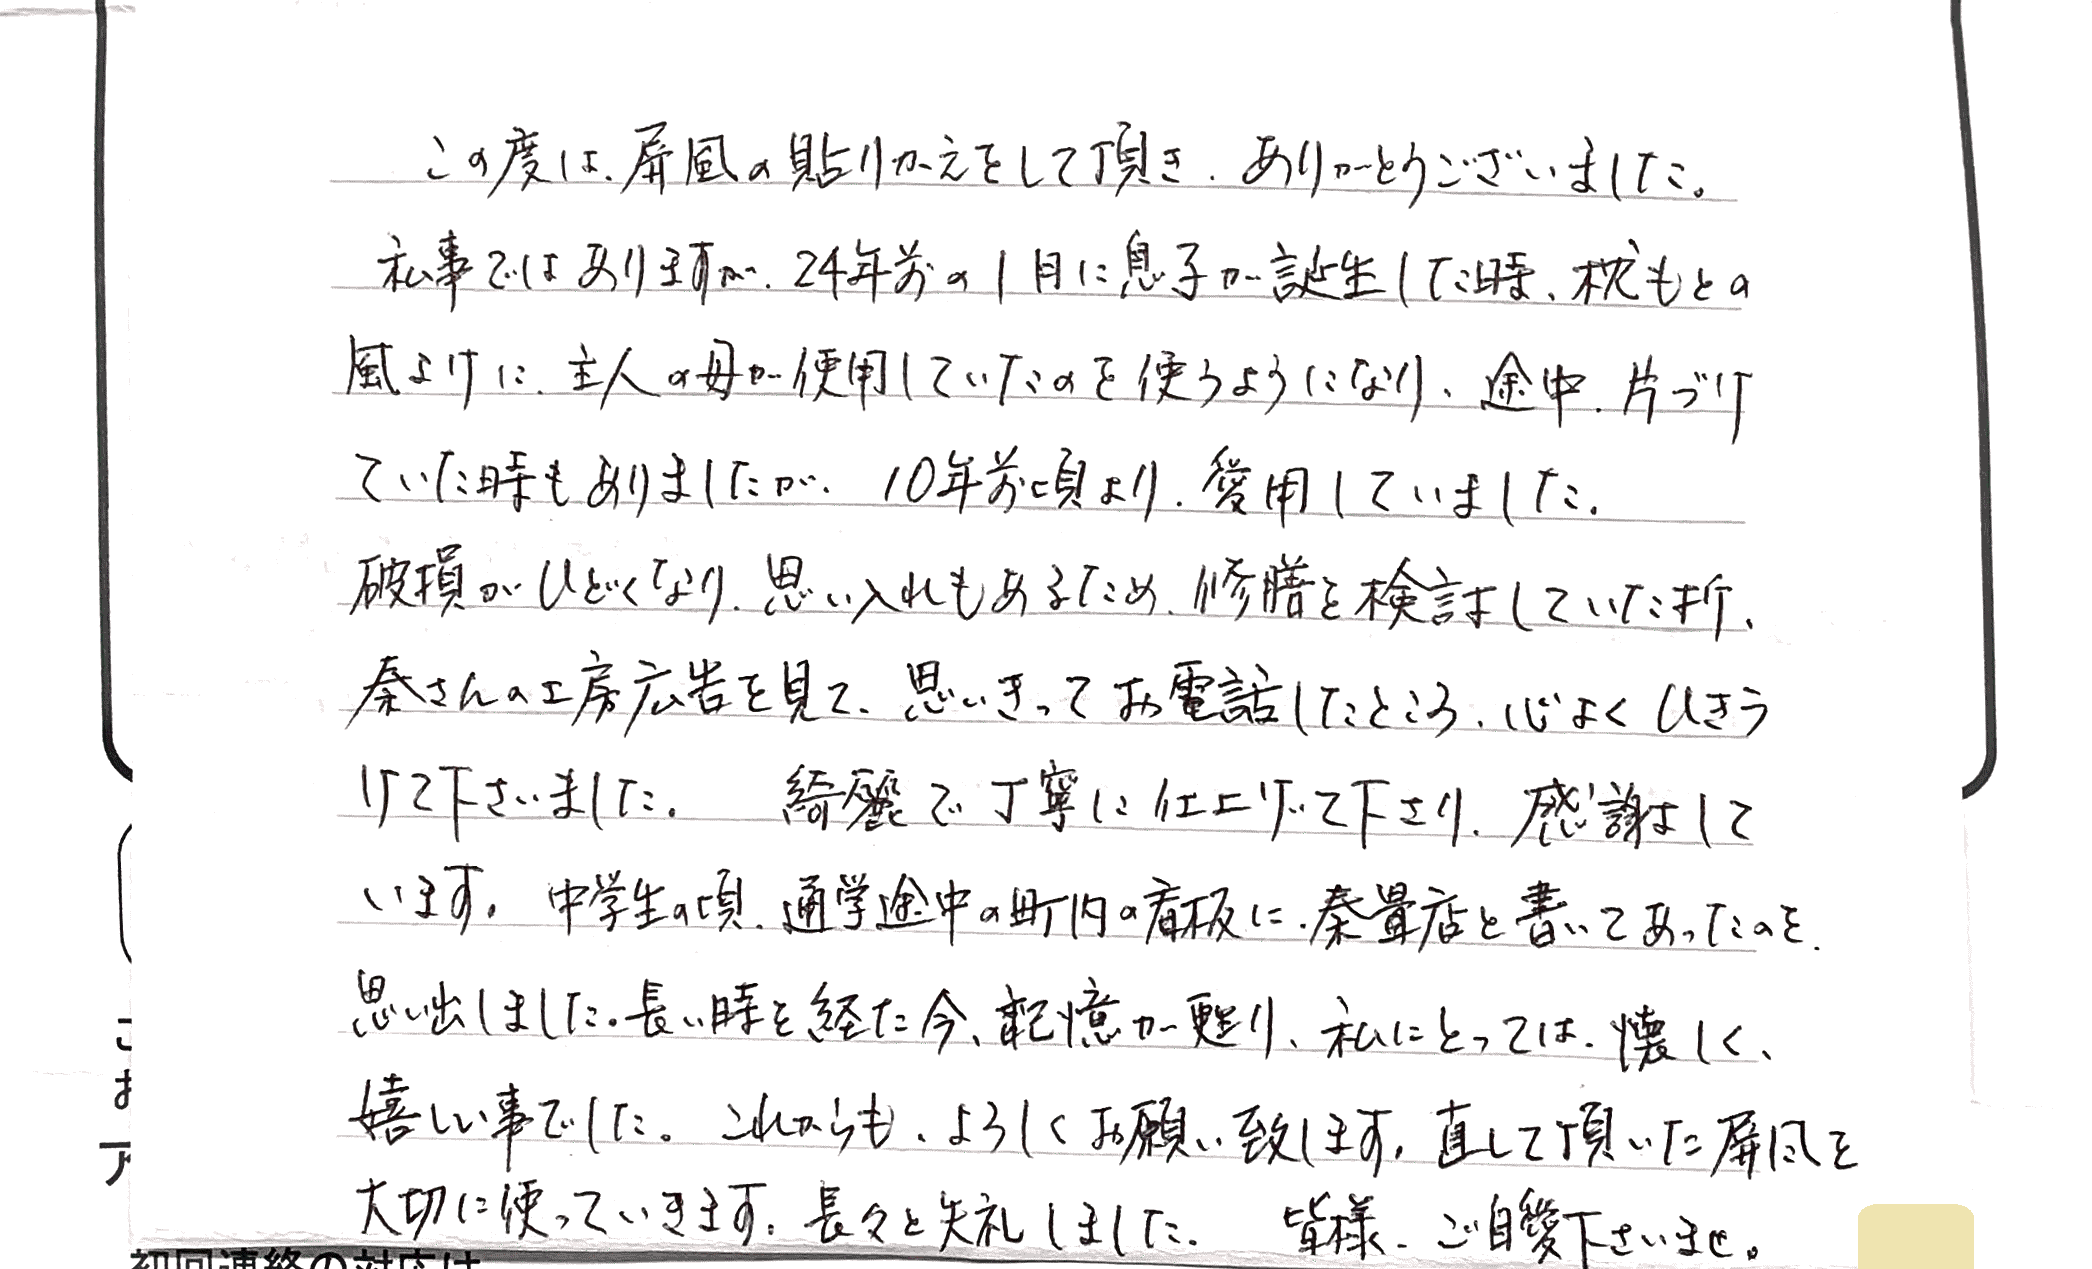 この度は、屏風の貼りかえをして頂き、ありがとうございました。
私事ではありますが、24年前の1月に息子が誕生した時、枕もとの
風よけに、主人の母が使用していたのを使うようになり、途中、片づけ
ていた時もありましたが、10年前頃より、愛用していました。
破損がひどくなり、思い入れもあるため、修膳を検討していた折、
秦さんの工房広告を見て、思いきってお電話したところ、心よくひきう
けて下さいました。 綺麗で丁寧に仕上げて下さり、感謝して
います。中学生の頃、通学途中の町内の看板に、秦畳店と書いてあったのを、
思い出しました。長い時を経た今、記憶が甦り、私にとっては、懐しく、
嬉しい事でした。これからも、よろしくお願い致します。直して頂いた屏風を
大切に使っていきます。長々と失礼しました。 皆様、ご自愛下さいませ。
こ
お
ア
初回連絡の対応は